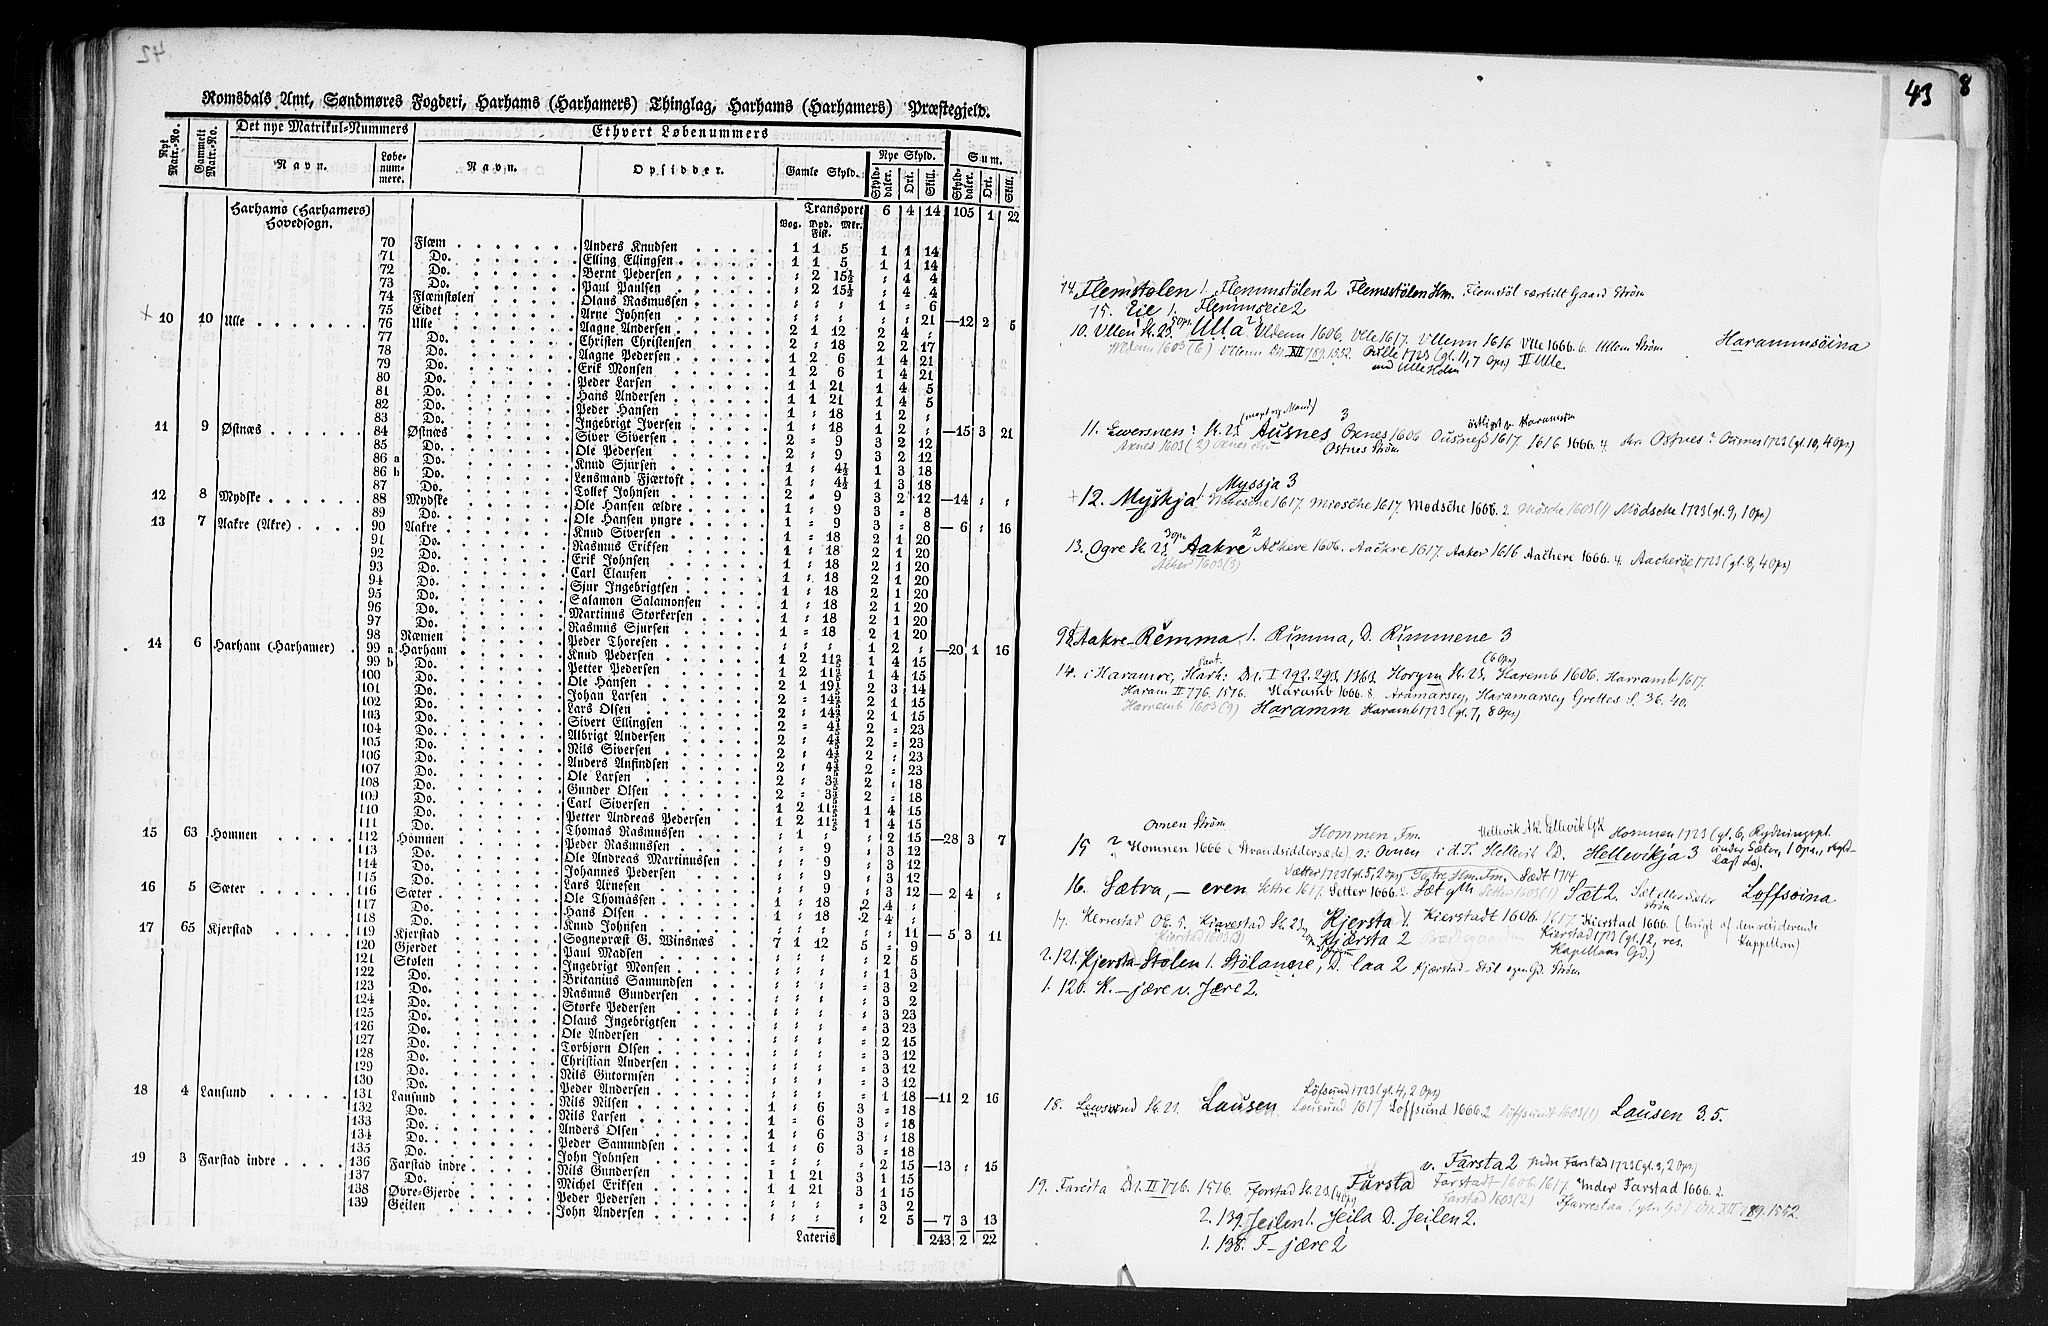 Romsdals Amt, Søndmøres Fogderi, Harhams (Harhamers) Thinglag, Harhams (Harhamers) Præstegjeld.
Nyt Matr.-No. Gammelt Matr.-No. Det nye Matrikul-Nummers Ethvert Løbenummers
Navn. Løbenummere. Navn. Opsidder. Gamle Skyld. Nye Skyld. Sum.
Skylddaler. Ort. Skill. Skylddaler. Ort. Skill.
Harhams (Harhamers) Hovedsogn. Transport 6 4 14 105 1 22
Vog. Pd. Fisk. Mkr.
70 Flæm Anders Knudsen 1 1 5 1 1 14
71 Do. Elling Ellingsen 1 1 5 1 1 14
72 Do. Bernt Pedersen " 2 15½ " 4 4
73 Do. Paul Paulsen " 2 15½ " 4 4
74 Flæmstolen Olaus Rasmussen 1 " 6
75 Eidet Arne Johnsen 21 —12 2 5
10 10 Ulle 76 Ulle Aagne Andersen 2 1 12 2 4 "
77 Do. Christen Christensen 2 " 18 2 2 17
78 Do. Aagne Pedersen 1 2 6 1 4 21
79 Do. Erik Monsen 1 2 6 1 4 21
80 Do. Peder Larsen 1 1 21 1 4 5
81 Do. Hans Andersen 1 1 21 1 4 5
82 Do. Peder Hansen 1 " 18 1 2 "
83 Do. Ingebrigt Iversen 1 " 18 1 2 " —15 3 21
11 9 Østnæs 84 Østnæs Siver Siversen 2 " 9 3 2 12
85 Do. Ole Pedersen 2 " 9 3 2 12
86 a Do. Knud Sjursen 1 " 4½ 1 3 18
86 b Do. Lensmand Fjærtoft 1 " 4½ 1 3 18
87 Do. Tollef Johnsen 2 " 9 3 2 12 —14 " "
12 8 Mydske 88 Mydske Ole Hansen ældre 1 " 9 3 " 8
89 Do. Ole Hansen yngre 1 " 9 3 " 8 — 6 " 16
13 7 Aakre (Akre) 90 Aakre Knud Siversen 1 " 18 2 1 20
91 Do. Rasmus Eriksen 1 " 18 2 1 20
92 Do. Erik Johnsen 1 " 18 2 1 20
93 Do. Carl Clausen 1 " 18 2 1 20
94 Do. Sjur Ingebrigtsen 1 " 18 2 1 20
95 Do. Salamon Salamonsen 1 " 18 2 1 20
96 Do. Martinus Størkersen 1 " 18 2 1 20
97 Do. Rasmus Sjursen 1 " 18 2 1 20
98 Næmen Peder Thoresen 1 2 " —20 1 16
14 6 Harham (Harhamer) 99 a Harham Knud Pedersen 1 2 1 4 15
99 b Do. Petter Pedersen 1 2 1 4 15
100 Do. Ole Hansen 2 1 2 3 14
101 Do. Johan Larsen 2 " 2 1 15
102 Do. Lars Olsen 2 " 2 1 15
103 Do. Sivert Ellingsen 2 " 2 " 23
104 Do. Albrigt Andersen 2 " 2 " 23
105 Do. Nils Siversen 2 " 2 " 23
106 Do. Anders Anfindsen 2 " 2 " 23
107 Do. Ole Larsen 2 " 2 " 18
108 Do. Gunder Olsen 2 " 2 " 18
109 Do. Carl Siversen 1 2 1 4 15
110 Do. Petter Andreas Pedersen 1 2 1 4 15
111 Do. Thomas Rasmussen " 1 " " 2 15 —28 3 7
15 63 Homnen 112 Homnen Peder Rasmussen " " 9 3 12
113 Do. Ole Andreas Martinussen " " 9 3 12
114 Do. Johannes Pedersen " " 9 3 12
115 Do. Lars Arnesen " " 9 3 12 — 2 4 "
16 5 Sæter 116 Sæter Ole Thomassen 1 " 18 2 4 "
117 Do. Hans Olsen 1 " 18 2 4 "
118 Do. Knud Johnsen 11 — 5 3 11
17 65 Kjerstad 119 Kjerstad Sognepræst G. Winsnæs 7 1 12 5 " 9
120 Gjerdet Paul Madsen 2 5
121 Stolen Ingebrigt Monsen 1 3
122 Do. Britanius Samundsen 3 2
123 Do. Rasmus Gundersen 3 2
124 Do. Størke Pedersen 3 23
125 Do. Olaus Ingebrigtsen 3 23
126 Do. Ole Andersen 2 15
127 Do. Torbjørn Olsen 3 12
128 Do. Christian Andersen 3 12
129 Do. Nils Gutormsen 3 12
130 Do. Peder Andersen 1 18 —11 2 16
18 4 Lausund 131 Lausund Nils Nilsen 1 " 6 3 " 18
132 Do. Nils Larsen 1 " 6 3 " 18
133 Do. Anders Olsen 1 " 6 3 " 18
134 Do. Peder Samundsen 1 " 6 3 " 18
135 Do. John Johnsen 2 15 —13 " 15
19 3 Farstad indre 136 Farstad indre Nils Gundersen 1 1 21 3 1 15
137 Do. Michel Eriksen 1 1 21 3 1 15
138 Øvre-Gjerde Peder Pedersen 3 2
139 Geilen John Andersen 2 5 — 7 3 13
Lateris 243 2 22
43 8
14. Flemstølen 1. Flemmstølen 2 Flemsstølen Hm. Flemstøl særskilt Gaard Strøm
15. Eie 1. Flemmseie 2
10. Ullen Sk. 23. Ulla 2 Uldenn 1606. Vlle 1617. Ullenn 1616 Vlle 1666. 6. Ullem Strøm Haramnsøina
Uldenn 1603 (6) Ullenn Dn. XII 789. 1552. Ølle 1723 (gl. 11, 7 Ops) II Ulle.
11. Eversness Sk. 23. Ausnes 3 Oxnes 1606 Ousness 1617. 1616 1666. 4. Ostnes? Oxnes 1723 (gl. 10, 4 Ops)
Ostnes Strøm
12. Myskja 1. Myssja 3 Miøsche 1617. Mødsche 1666. 2. Møsche 1603(1) Mødsche 1723 (gl. 9, 1 Ops)
13. Ogre Sk. 23. Aakre 2 Achere 1606. Aackre 1617. Aaker 1616 Aachere 1666. 4. Aacherøe 1723 (gl. 8, 4 Ops)
Acher 1603 (3)
98 Aakre-Remma 1. Rimma, D. Rimmene 3
14. i Haramre, Harh: Dn. I 292. 293. 1363. Horgum Sk. 23. Haremb 1606. Harramb 1617.
Haram II 776. 1576. Haramb 1666. 8. Aramarsey, Haramarsey Grottes S. 36. 40.
Harremb 1603 (9) Haramm Haramb 1723 (gl. 7, 8 Ops)
Ovnen Strøm Hommen Fm. Homnen 1723 (gl. 6, Rydningspl.
15 Homnen 1666 (Strandsiddersæde) Ovnen i d. T. Hellevik Ld. Hellevikja 3 under Sæter, 1 Ops.,
Sætter 1723 (gl. 5, 2 Ops) Sædt 1714
16. Sætra, — even Settre 1617. Setter 1666. 2. Sæt gth Setter 1603 (1) Sæt 2. Sæt eller Sæter Strøm Løffsøina
17. Kerrestad OE. 5. Kiarestad Sk. 23. Kjersta 1. Kierstadt 1606. 1617. Kierstad 1666 (brugt af den residerende Kappellan)
Kierstad 1603 (3) Kjærsta 2 Præstegaarden Kierstad 1723 (gl. 12, res. Kapellans Gd.)
2. 121. Kjersta-Stølen 1. Stølanere, D. laa 2 Kjærstad-Støl egen Gd. Strøm
1. 120. K. — jære v. Jære 2.
Løfsund 1723 (gl. 4, 2 Ops)
18. Sk. 23. Lausen Lousund 1617 Loffsund 1666. 2 Løffsundt 1603 (1) Lausen 3. 5.
v. Farsta 2 Indre Farstad 1723 (gl. 3, 2 Ops)
19. Farcsta Dn. II 776. 1576. Fforstad Sk. 23. (4 Ops) Farsta Farstadt 1606. 1617. Inder Farstad 1666. 2.
Farstad 1603 (2) Dn. XII 789. 1552.
2. 139. Jeilen 1. Jeila D. Jeilen 2.
1. 138. F— jære 2